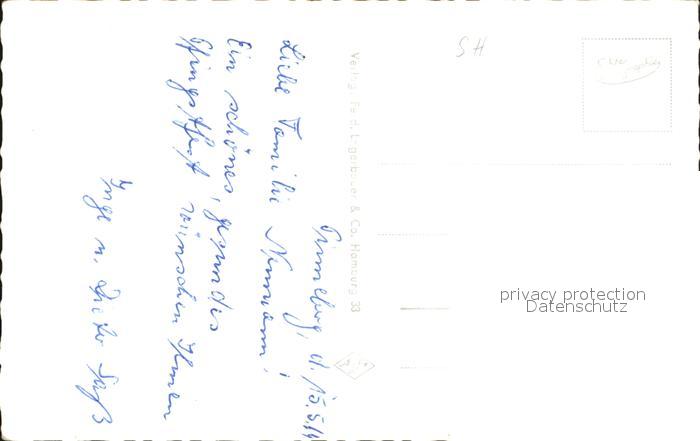 Pinneberg, d. 15.5.
Liebe Familie Neumann!
Ein schönes, gesundes
Pfingstfest wünschen Ihnen
Inge u. Dieter
Verlag Ferd. Lagerbauer & Co., Hamburg 33
SH
privacy protection
Datenschutz